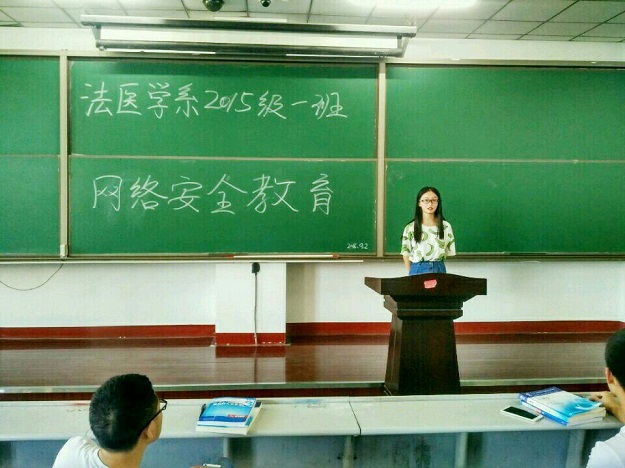 法医学系2015级一班
网络安全教育